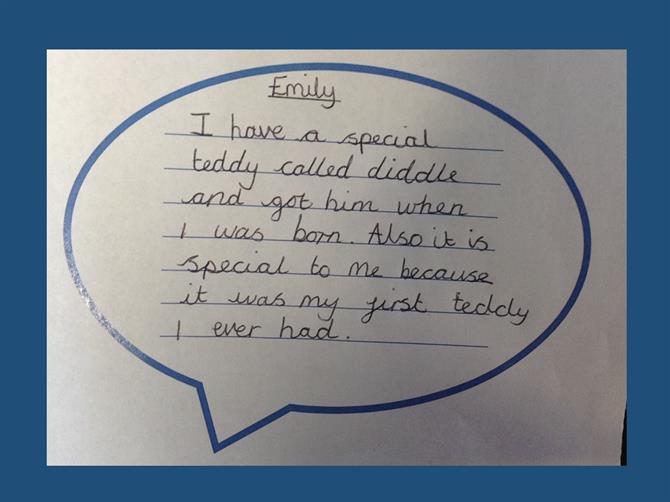 Emily
I have a special
teddy called diddle
and got him when
I was born. Also it is
special to me because
it was my first teddy
I ever had.